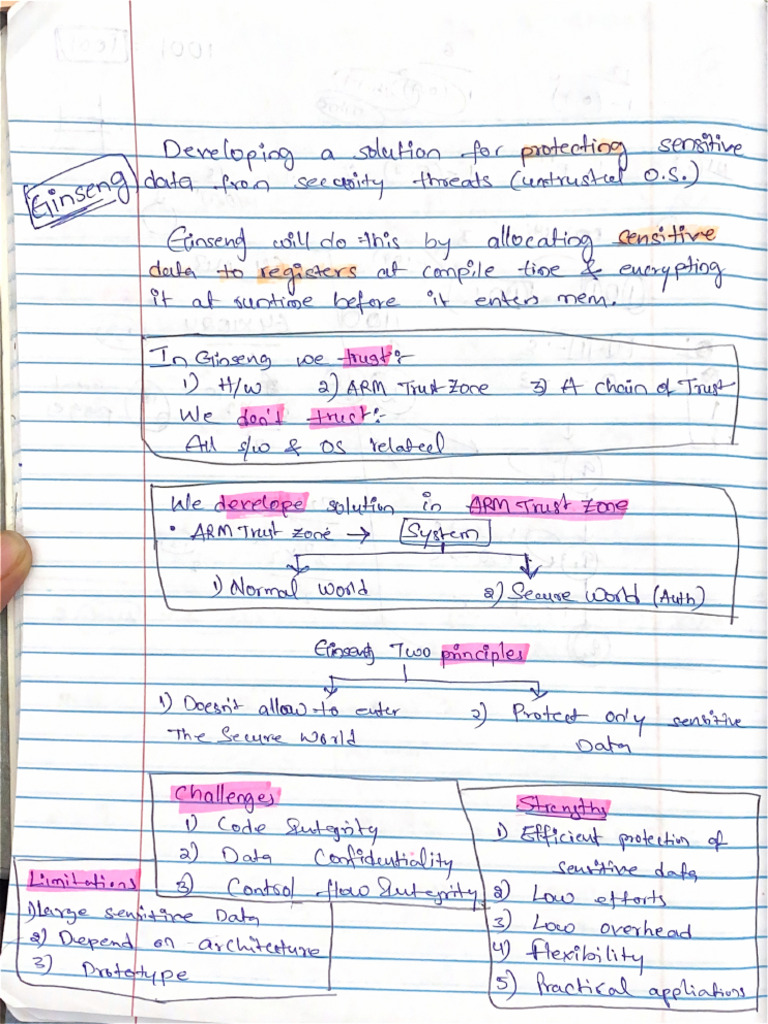 Developing a solution for protecting sensitive
Ginseng
data from security threats (untrusted O.S.)
Ginseng will do this by allocating sensitive
data to registers at compile time & encrypting
it at runtime before it enters mem.
In Ginseng we trust:-
1) H/W 2) ARM Trust Zone 3) A chain of Trust
We don't trust:-
All s/w & OS related
We develope solution in ARM Trust Zone
• ARM Trust zone → System
1) Normal World 2) Secure World (Auth)
Ginseng Two principles
1) Doesn't allow to enter
The Secure World
2) Protect only sensitive
Data
Challenges
1) Code Integrity
2) Data Confidentiality
3) Control flow Integrity
Strengths
1) Efficient protection of
sensitive data
2) Low efforts
3) Low overhead
4) Flexibility
5) Practical appliations
Limitations
1) Large sensitive Data
2) Depend on architecture
3) Prototype